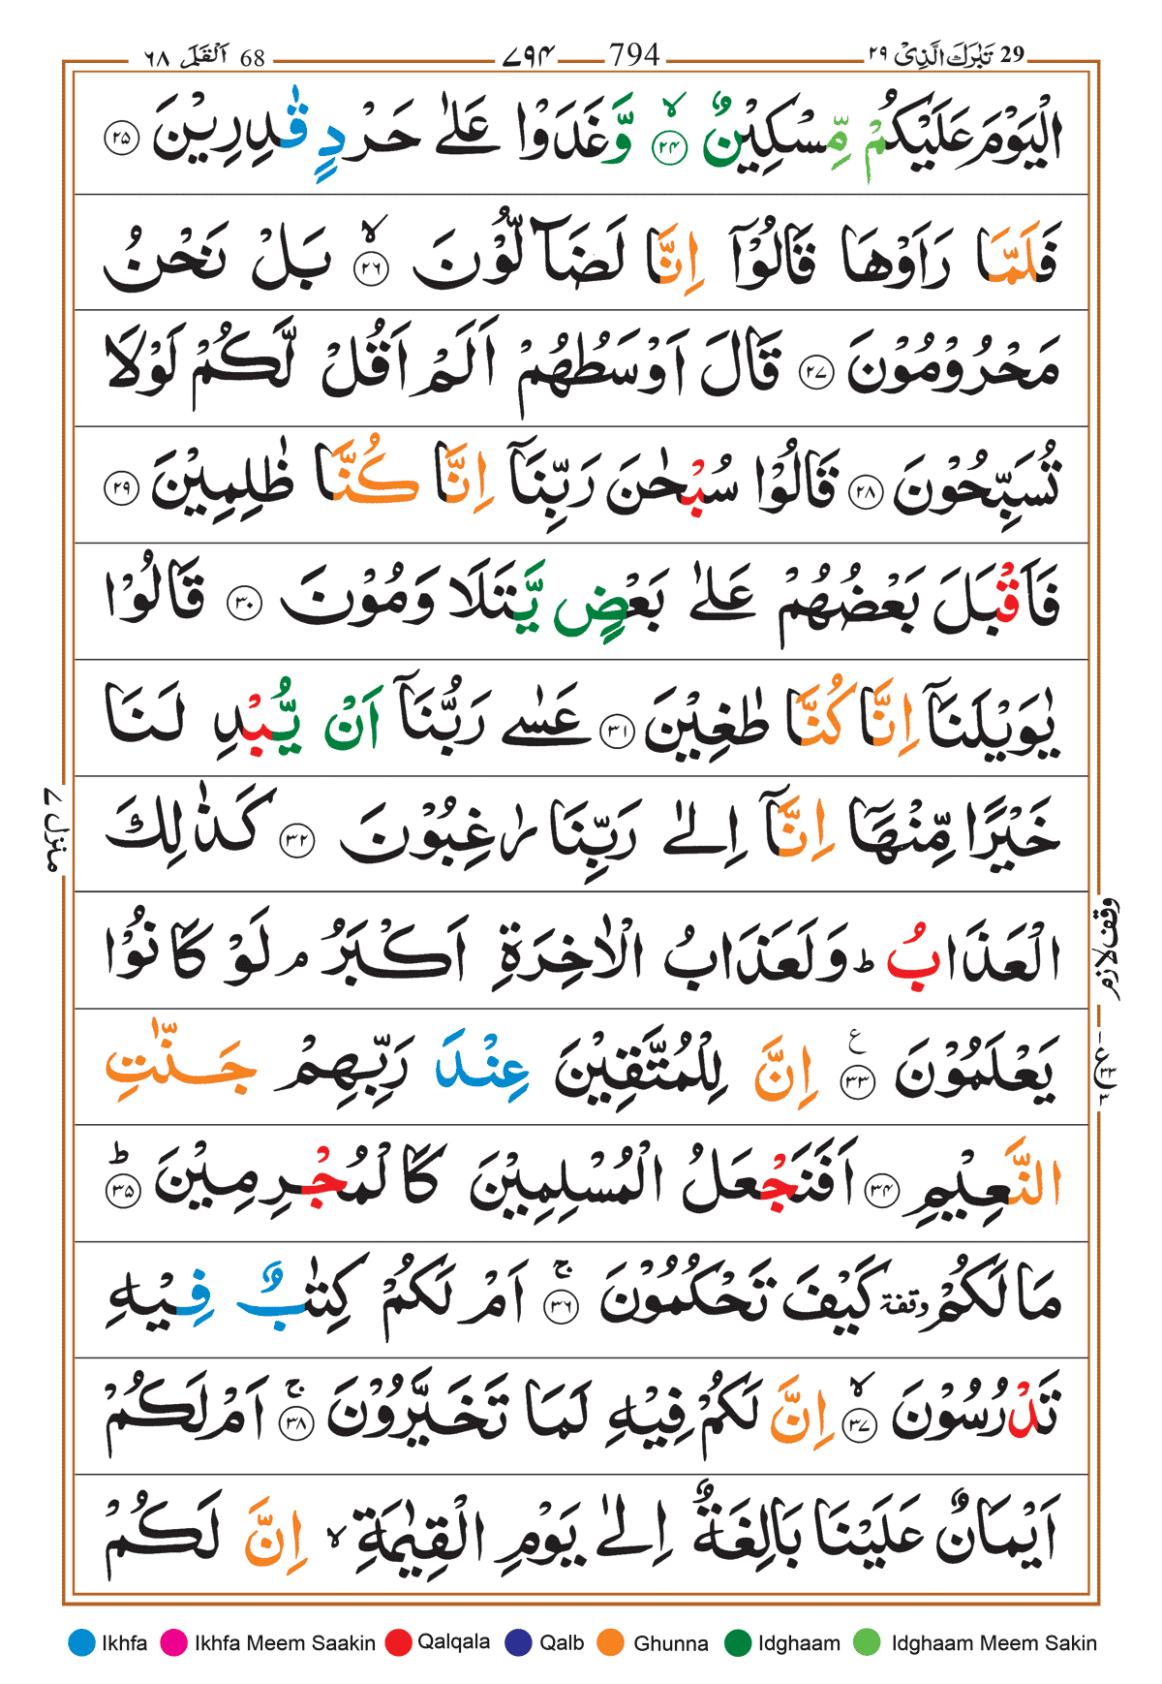 ٦٨ اَلْقَلَمْ 68 ٧٩٤ 794 ٢٩ تَبٰرَكَ الَّذِىْ 29
الْيَوْمَ عَلَيْكُمْ مِّسْكِيْنٌۙ ﴿۲۴﴾ وَّغَدَوْا عَلٰى حَرْدٍ قٰدِرِيْنَ ﴿۲۵﴾
فَلَمَّا رَاَوْهَا قَالُوْۤا اِنَّا لَضَآلُّوْنَۙ ﴿۲۶﴾ بَلْ نَحْنُ
مَحْرُوْمُوْنَ ﴿۲۷﴾ قَالَ اَوْسَطُهُمْ اَلَمْ اَقُلْ لَّكُمْ لَوْلَا
تُسَبِّحُوْنَ ﴿۲۸﴾ قَالُوْا سُبْحٰنَ رَبِّنَاۤ اِنَّا كُنَّا ظٰلِمِيْنَ ﴿۲۹﴾
فَاَقْبَلَ بَعْضُهُمْ عَلٰى بَعْضٍ يَّتَلَاوَمُوْنَ ﴿۳۰﴾ قَالُوْا
يٰوَيْلَنَاۤ اِنَّا كُنَّا طٰغِيْنَ ﴿۳۱﴾ عَسٰى رَبُّنَاۤ اَنْ يُّبْدِلَنَا
خَيْرًا مِّنْهَاۤ اِنَّاۤ اِلٰى رَبِّنَا رٰغِبُوْنَ ﴿۳۲﴾ كَذٰلِكَ
الْعَذَابُ ؕ وَلَعَذَابُ الْاٰخِرَةِ اَكْبَرُ ۘ لَوْ كَانُوْا
يَعْلَمُوْنَ ﴿۳۳﴾ ع اِنَّ لِلْمُتَّقِيْنَ عِنْدَ رَبِّهِمْ جَنّٰتِ
النَّعِيْمِ ﴿۳۴﴾ اَفَنَجْعَلُ الْمُسْلِمِيْنَ كَالْمُجْرِمِيْنَؕ ﴿۳۵﴾
مَا لَكُمْ وقفة كَيْفَ تَحْكُمُوْنَۚ ﴿۳۶﴾ اَمْ لَكُمْ كِتٰبٌ فِيْهِ
تَدْرُسُوْنَۙ ﴿۳۷﴾ اِنَّ لَكُمْ فِيْهِ لَمَا تَخَيَّرُوْنَۚ ﴿۳۸﴾ اَمْ لَكُمْ
اَيْمَانٌ عَلَيْنَا بَالِغَةٌ اِلٰى يَوْمِ الْقِيٰمَةِۙ اِنَّ لَكُمْ
منزل ٧
وقف لازم
Ikhfa Ikhfa Meem Saakin Qalqala Qalb Ghunna Idghaam Idghaam Meem Sakin